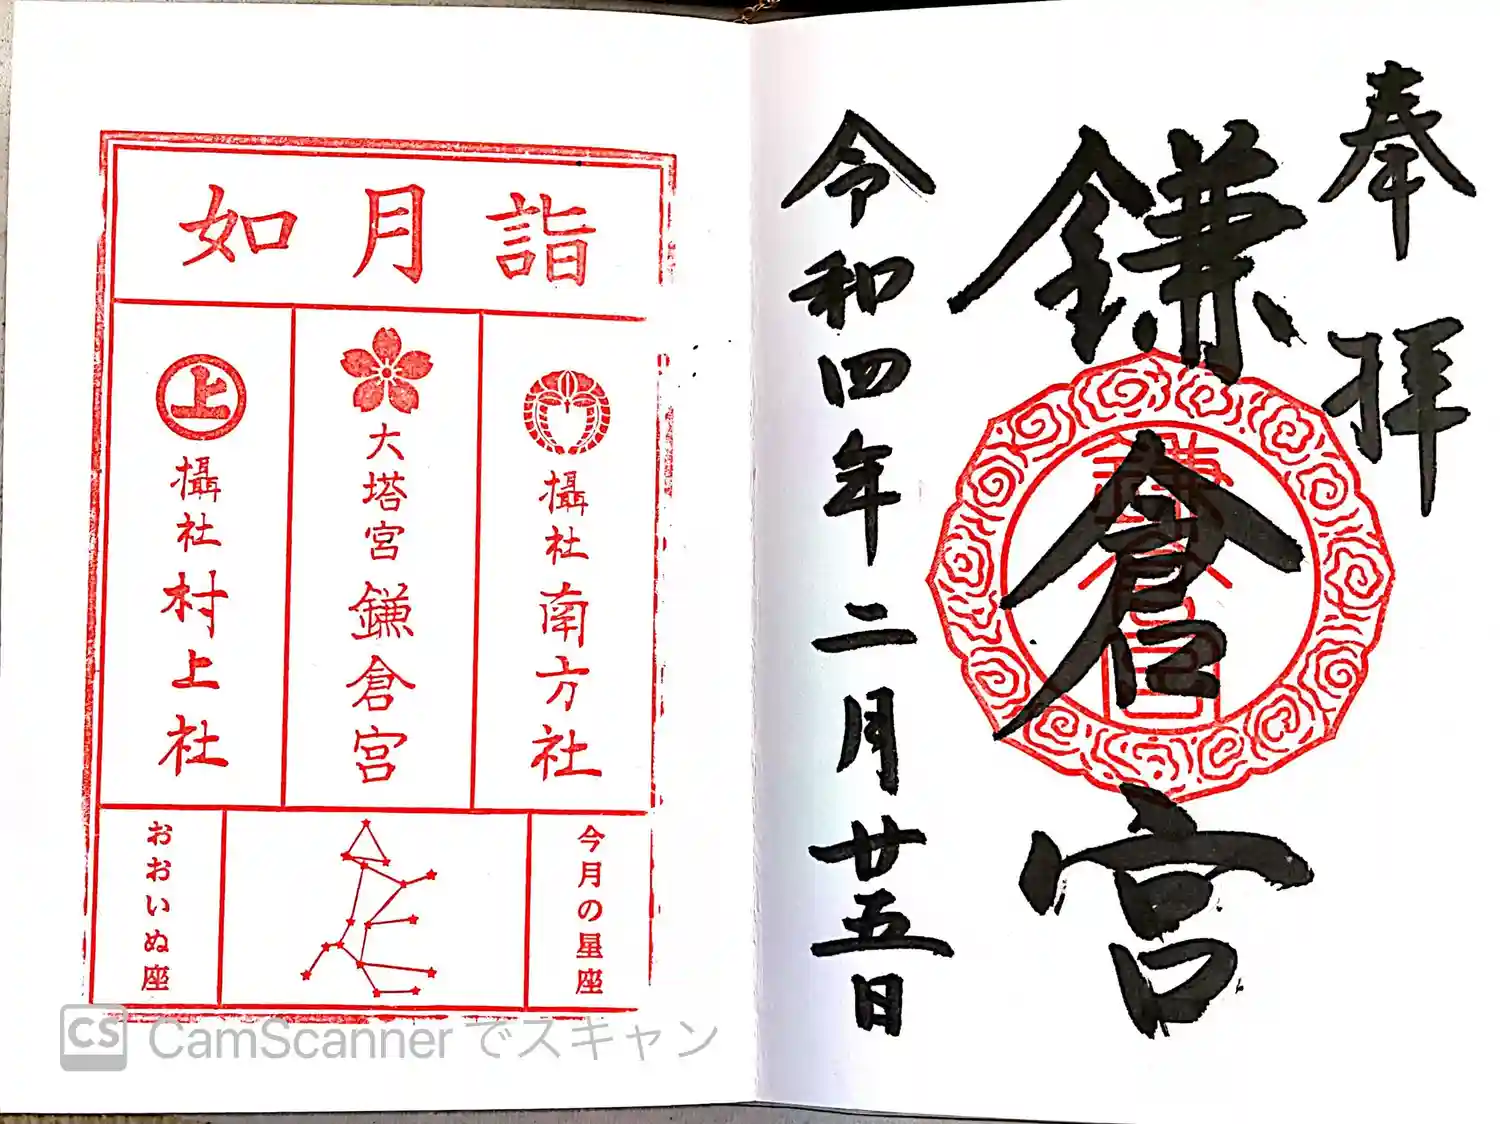 奉拝
鎌倉宮
令和四年二月廿五日
如月詣
上
攝社 南方社
大塔宮 鎌倉宮
攝社 村上社
今月の星座
おおいぬ座
CS CamScannerでスキャン